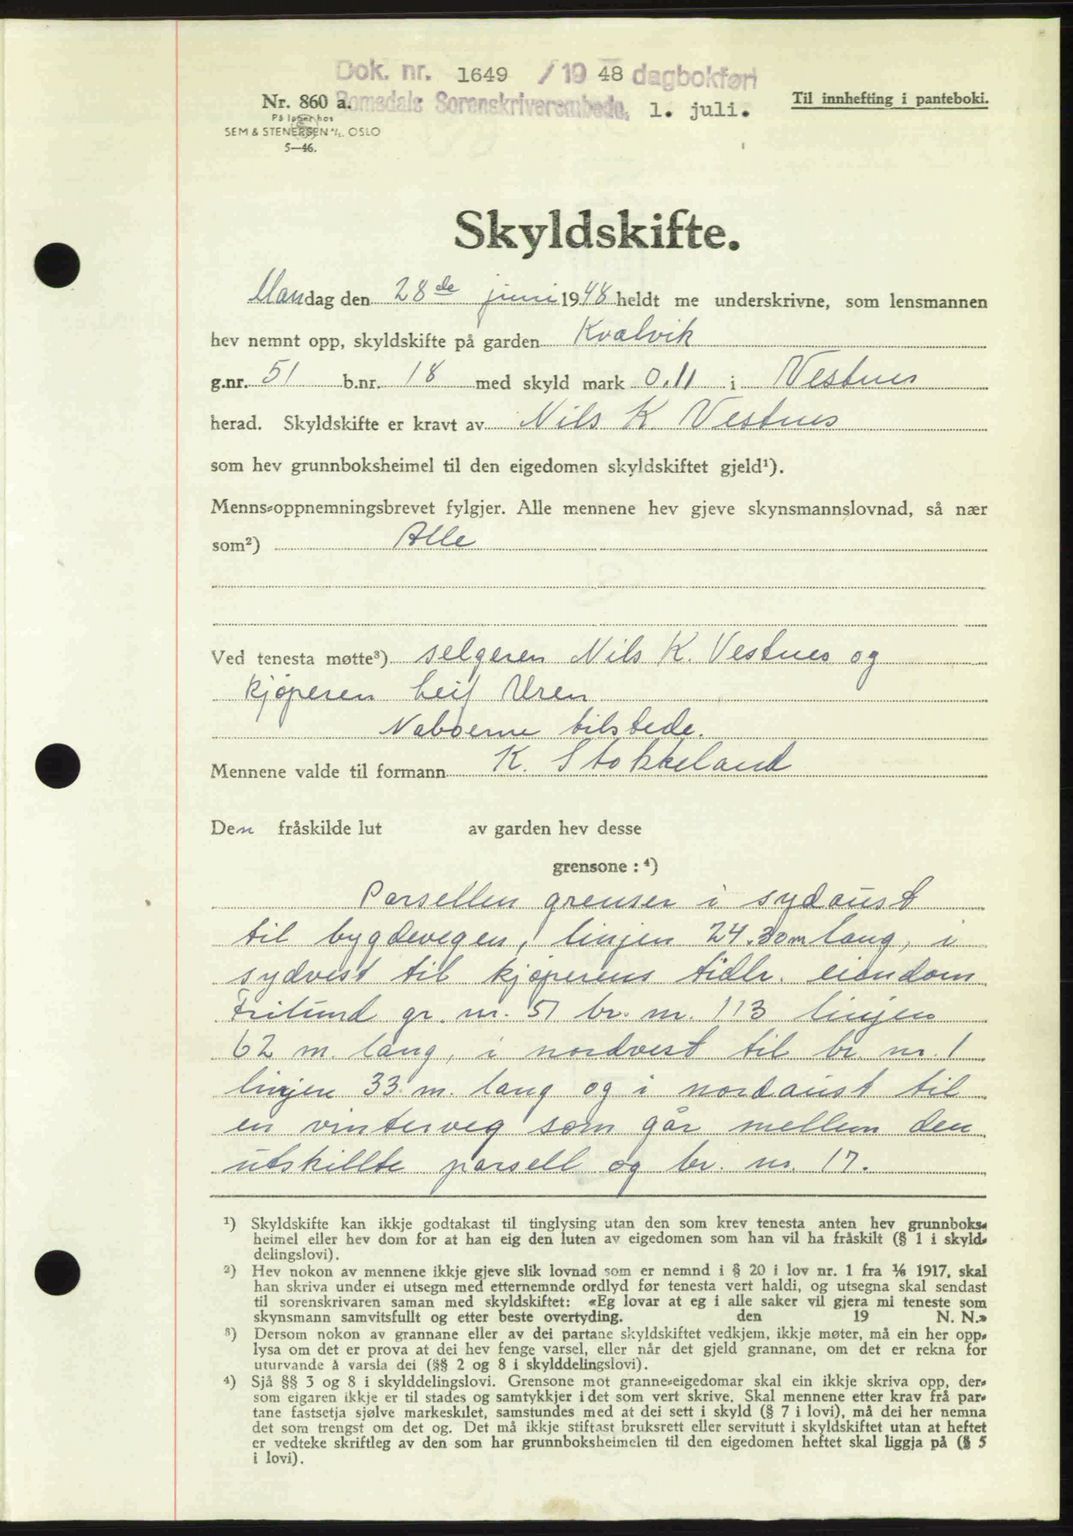 Dok. nr. 1649 / 19 48 dagbokført
Romsdals Sorenskriverembede, 1. juli.
Nr. 860 a.
På lager hos
SEM & STENERSEN A/S. OSLO
5—46.
Til innhefting i panteboki.
Skyldskifte.
Mandag den 28de juni 1948 heldt me underskrivne, som lensmannen
hev nemnt opp, skyldskifte på garden Kvalvik
g.nr. 51 b.nr. 18 med skyld mark 0.11 i Vestnes
herad. Skyldskifte er kravt av Nils K. Vestnes
som hev grunnboksheimel til den eigedomen skyldskiftet gjeld¹).
Menns-oppnemningsbrevet fylgjer. Alle mennene hev gjeve skynsmannslovnad, så nær
som²) Alle
Ved tenesta møtte³) selgeren Nils K. Vestnes og
kjøperen Leif Uren
Naboerne tilstede.
Mennene valde til formann K. Stokkeland
Den fråskilde lut av garden hev desse
grensone : ⁴)
Parsellen grenser i sydaust
til bygdevegen, linjen 24.30 m lang, i
sydvest til kjøperens tidlr. eiendom
Fritund gr. nr. 51 br. nr. 113 linjen
62 m. lang, i nordvest til br nr. 1
linjen 33 m. lang og i nordaust til
en vinterveg som går mellem den
utskillte parsell og br. nr. 17.
¹) Skyldskifte kan ikkje godtakast til tinglysing utan den som krev tenesta anten hev grunnboks-
heimel eller hev dom for at han eig den luten av eigedomen som han vil ha fråskilt (§ 1 i skyld-
delingslovi).
²) Hev nokon av mennene ikkje gjeve slik lovnad som er nemnd i § 20 i lov nr. 1 fra ⅙ 1917, skal
han skriva under ei utsegn med etternemnde ordlyd før tenesta vert haldi, og utsegna skal sendast
til sorenskrivaren saman med skyldskiftet: «Eg lovar at eg i alle saker vil gjera mi teneste som
skynsmann samvitsfullt og etter beste overtyding. den 19 N. N.»
³) Dersom nokon av grannane eller av dei partane skyldskiftet vedkjem, ikkje møter, må ein her opp-
lysa om det er prova at dei hev fenge varsel, eller når det gjeld grannane, om det er rekna for
uturvande å varsla dei (§§ 2 og 8 i skylddelingslovi).
⁴) Sjå §§ 3 og 8 i skylddelingslovi. Grensone mot granne-eigedomar skal ein ikkje skriva opp, der-
som eigaren ikkje er til stades og samtykkjer i det som vert skrive. Skal mennene etter krav frå par-
tane fastsetja sjølve markeskilet, samstundes med at dei sett i skyld (§ 7 i lovi), må dei her nemna
det som trengst om det og. Det må ikkje stiftast bruksrett eller servitutt i skyldskiftet utan at heftet
er vedteke skriftleg av den som har grunnboksheimelen til den eigedomen heftet skal liggja på (§ 5
i lovi).